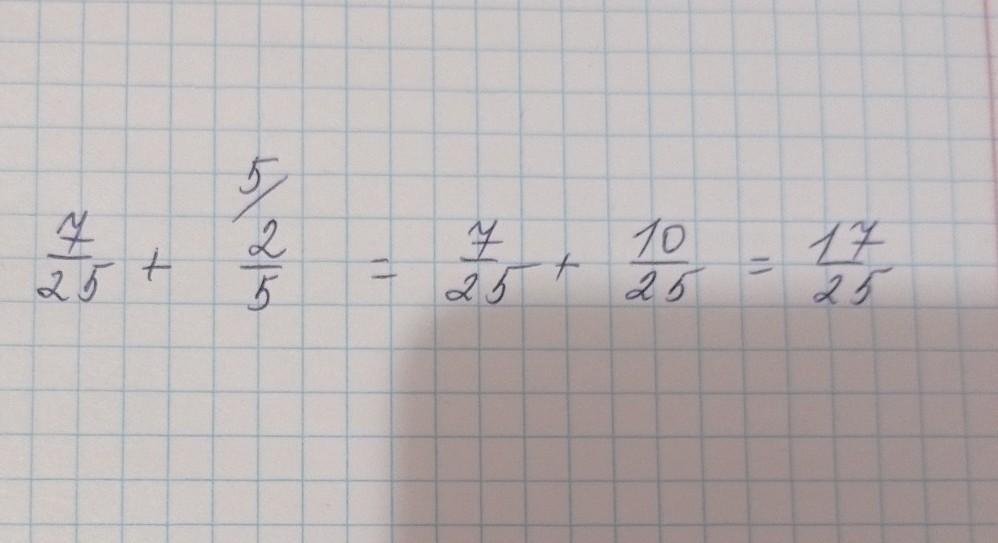 7/25 + 5/ 2/5 = 7/25 + 10/25 = 17/25